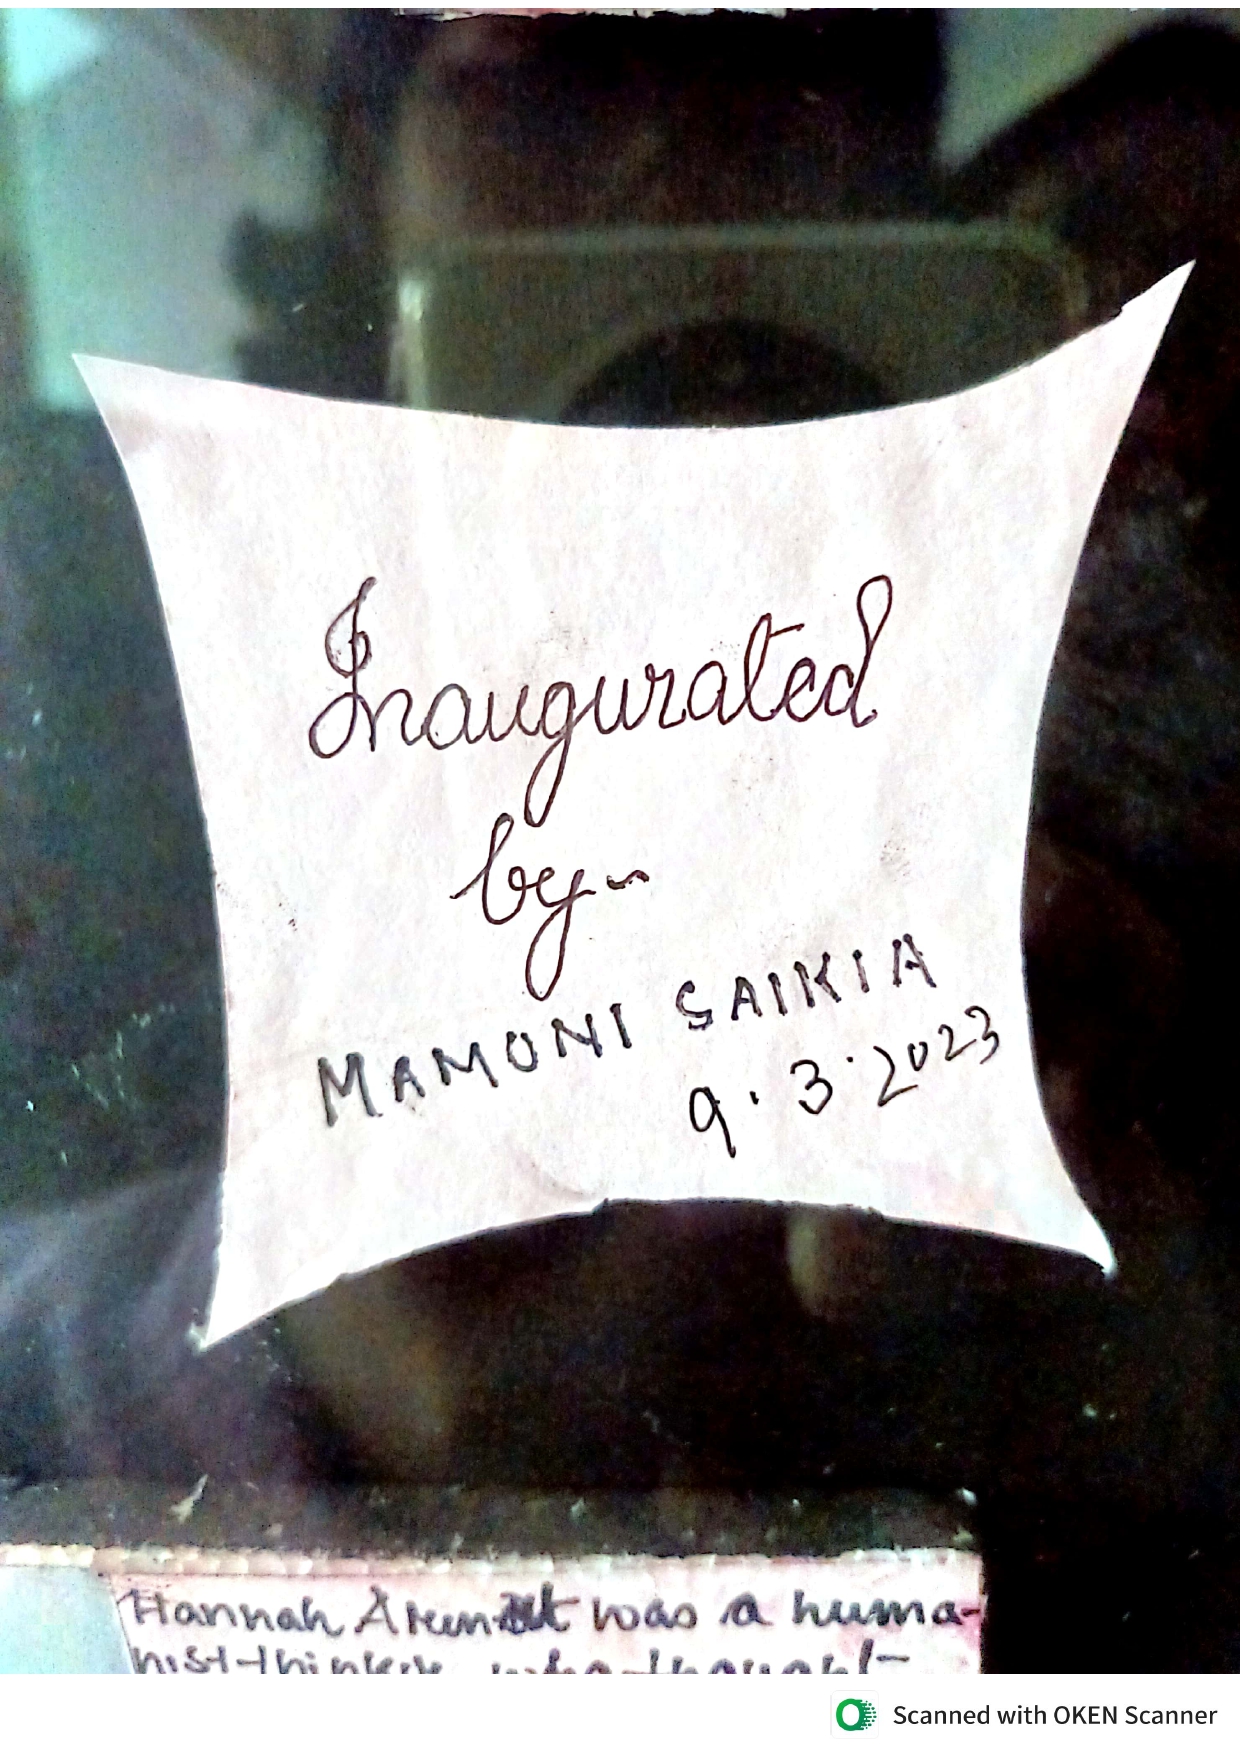 Inaugurated
by-
MAMONI SAIKIA
9.3.2023
Hannah Arendt was a huma-
nist thinker who thought
Scanned with OKEN Scanner